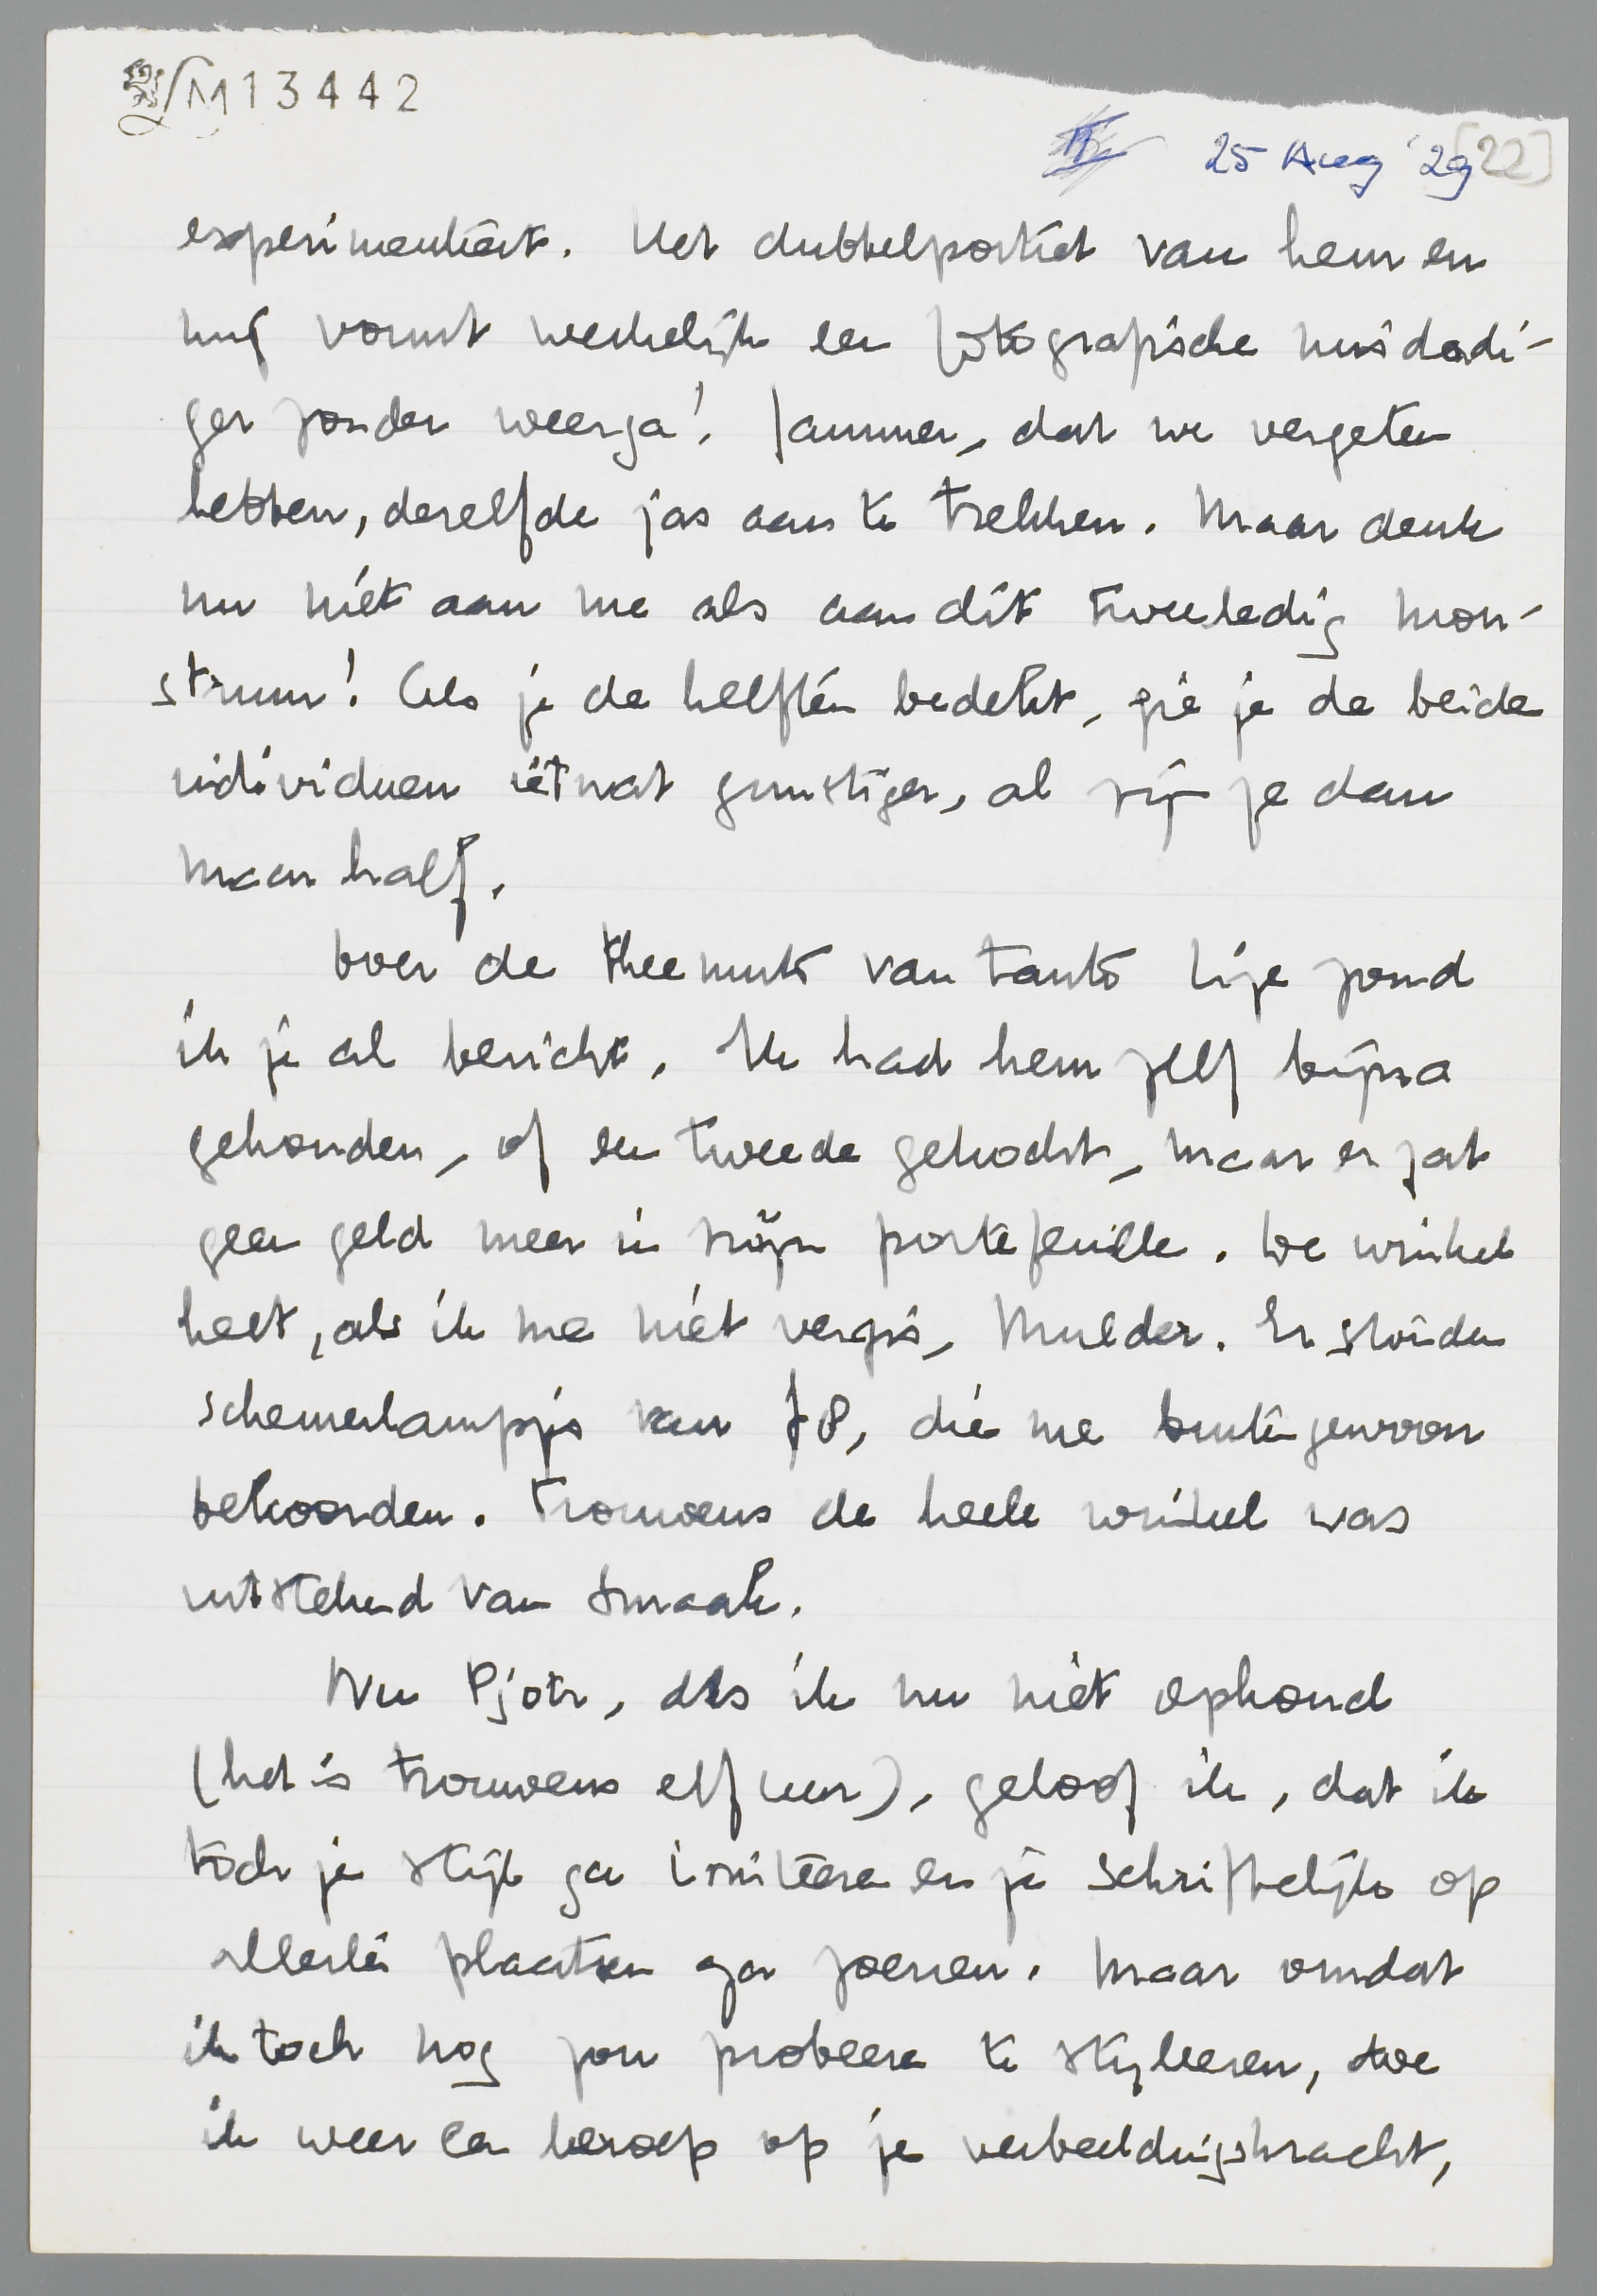 LM 13442
25 Aug '29 [22]
experimenteert. Het dubbelportret van hem en
mij vormt werkelijk een fotografische misdadi-
ger zonder weerga! Jammer, dat we vergeten
hebben, dezelfde jas aan te trekken. Maar denk
nu niet aan me als aan dit tweeledig mon-
strum! Als je de helften bedekt, zie je de beide
individuen iets wat gunstiger, al zijn ze dan
maar half.
Over de theemuts van tante Lize zond
ik je al bericht. Ik had hem zelf bijna
gehouden, of een tweede gekocht, maar er zat
geen geld meer in mijn portefeuille. De winkel
heet, als ik me niet vergis, Mulder. Er stonden
schemerlampjes van f 8, die me buitengewoon
bekoorden. Trouwens de heele winkel was
uitstekend van smaak.
Nu Pjotr, als ik nu niet ophoud
(het is trouwens elf uur), geloof ik, dat ik
toch je stijl ga imiteeren en je schriftelijk op
allerlei plaatsen ga zoenen. Maar omdat
ik toch nog zou probeeren te stijleeren, doe
ik weer een beroep op je verbeeldingskracht,